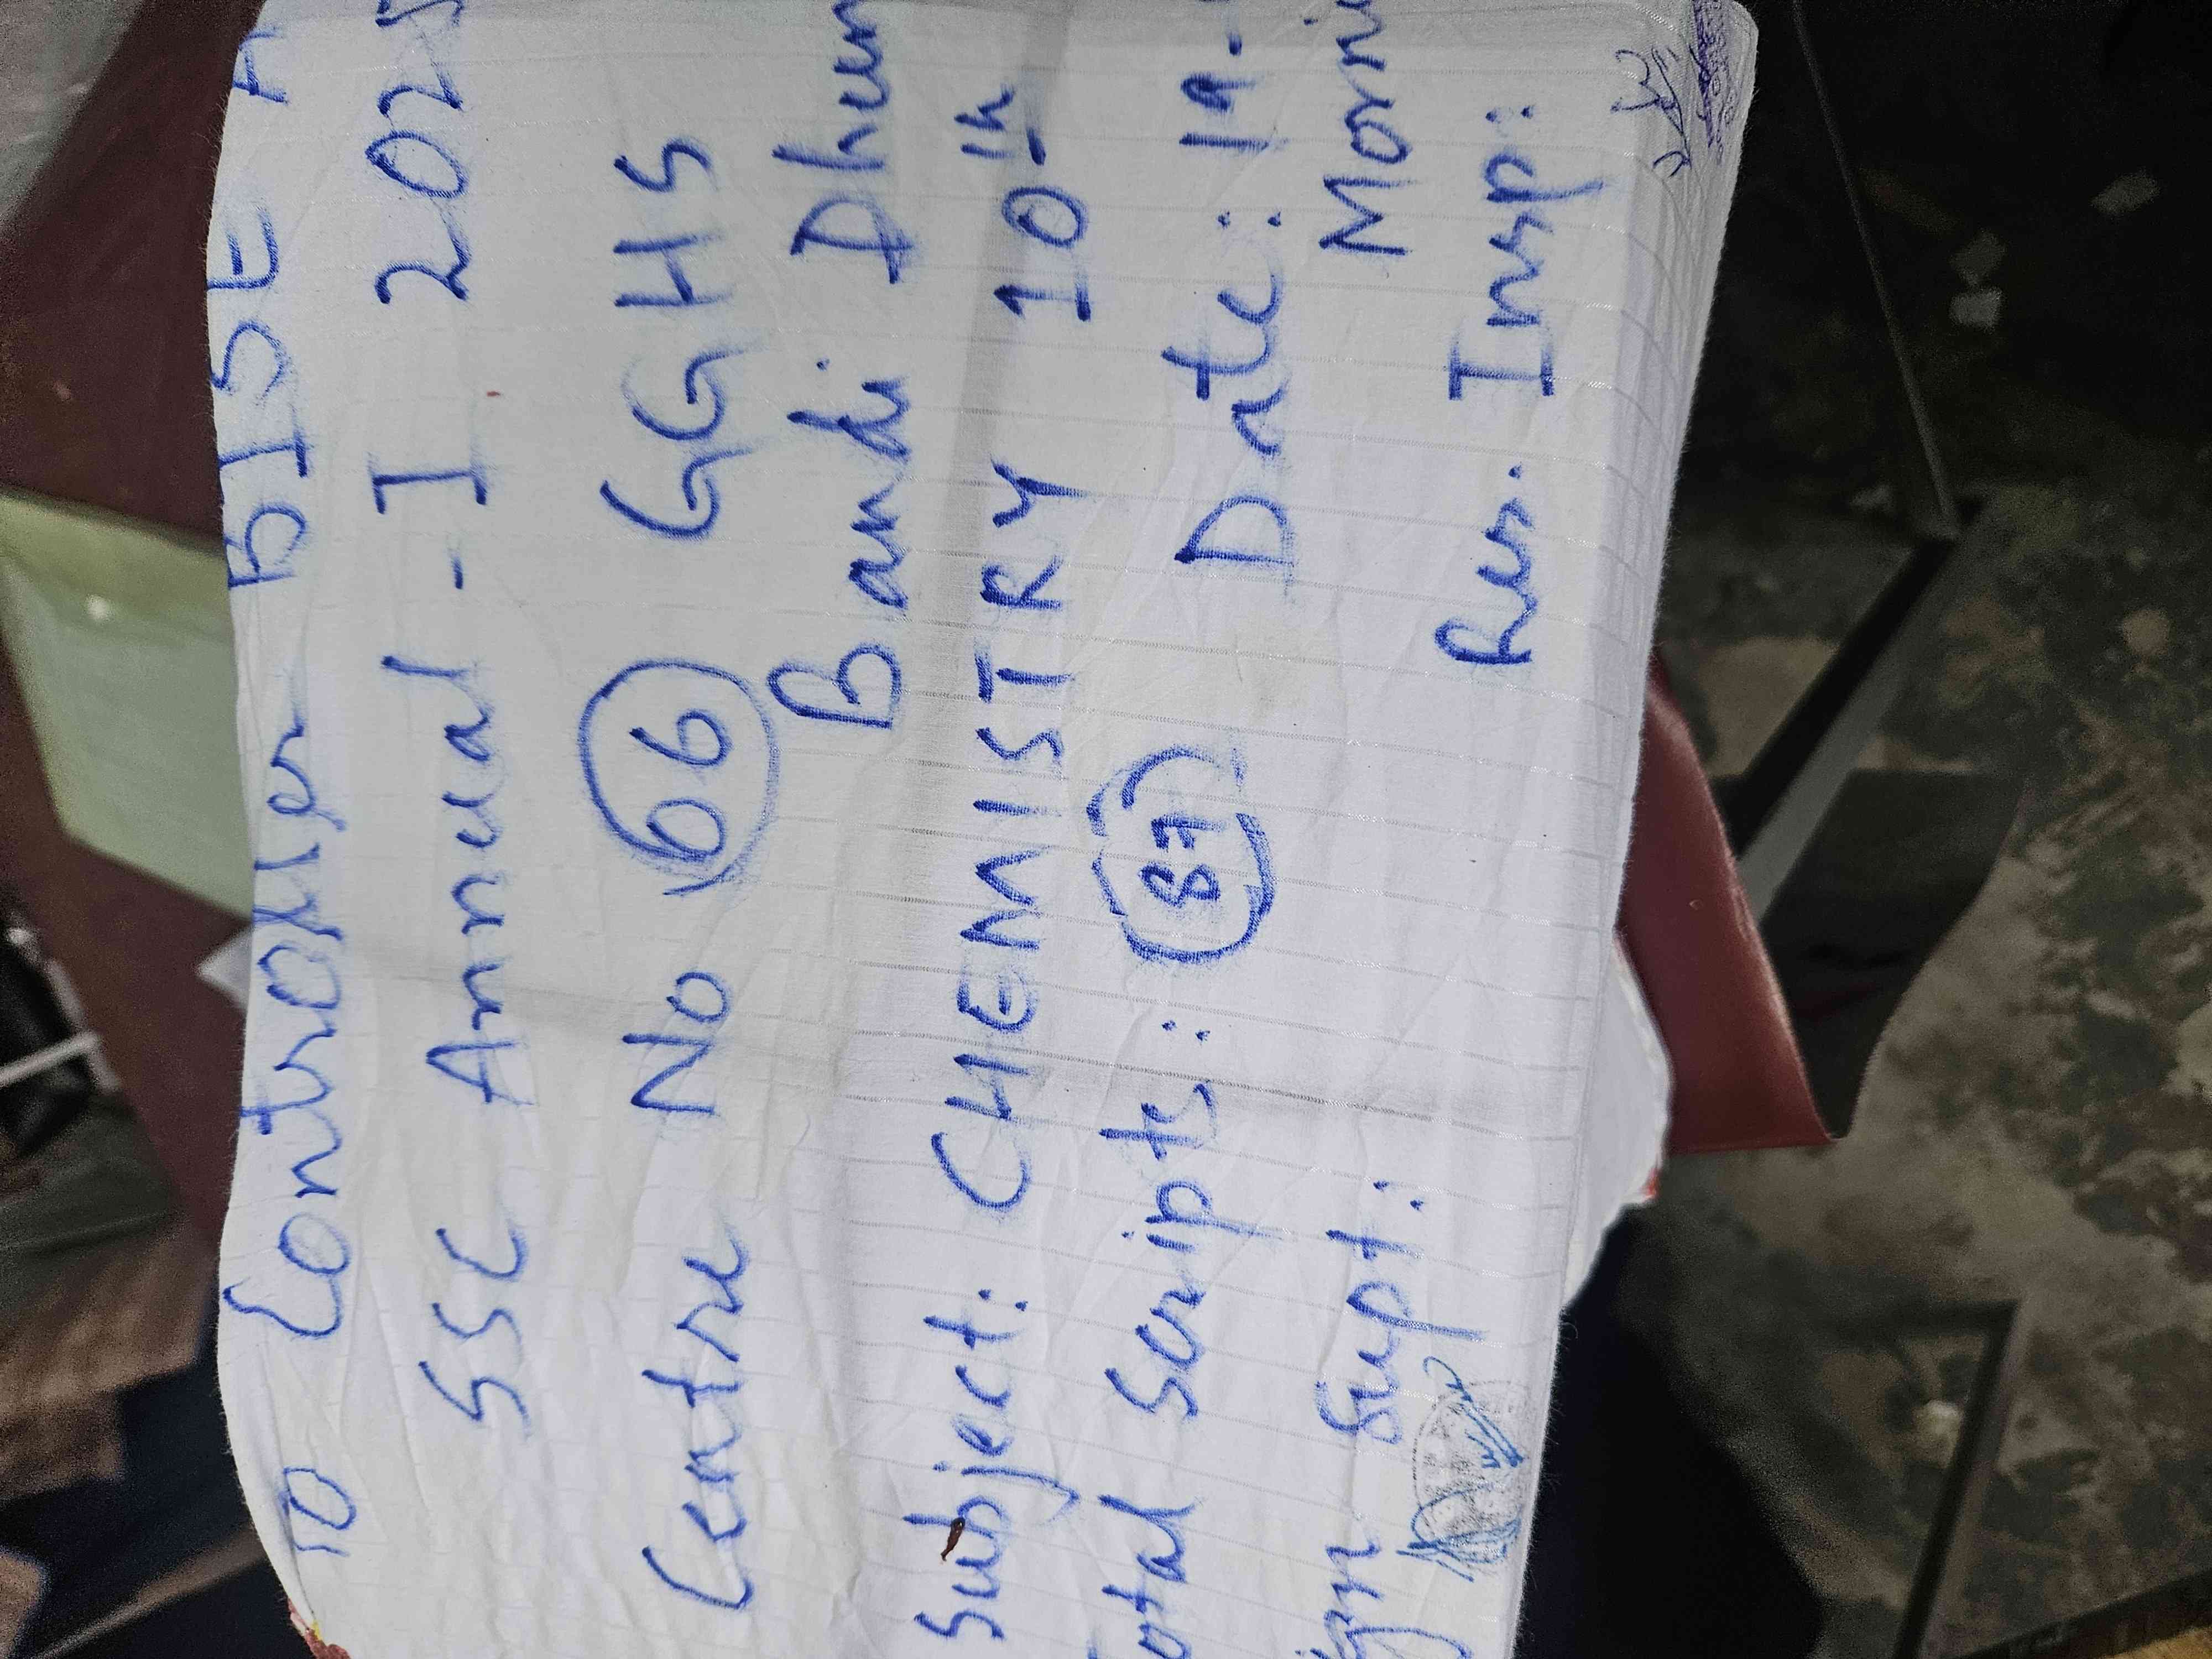 To Controller BISE A
SSC Annual - I 2025
Centre No 66 GGHS
Bandi Dhun
Subject: CHEMISTRY 10th
Total Scripts: 87 Date: 19-
Sign Supt: Morni
Res. Insp: